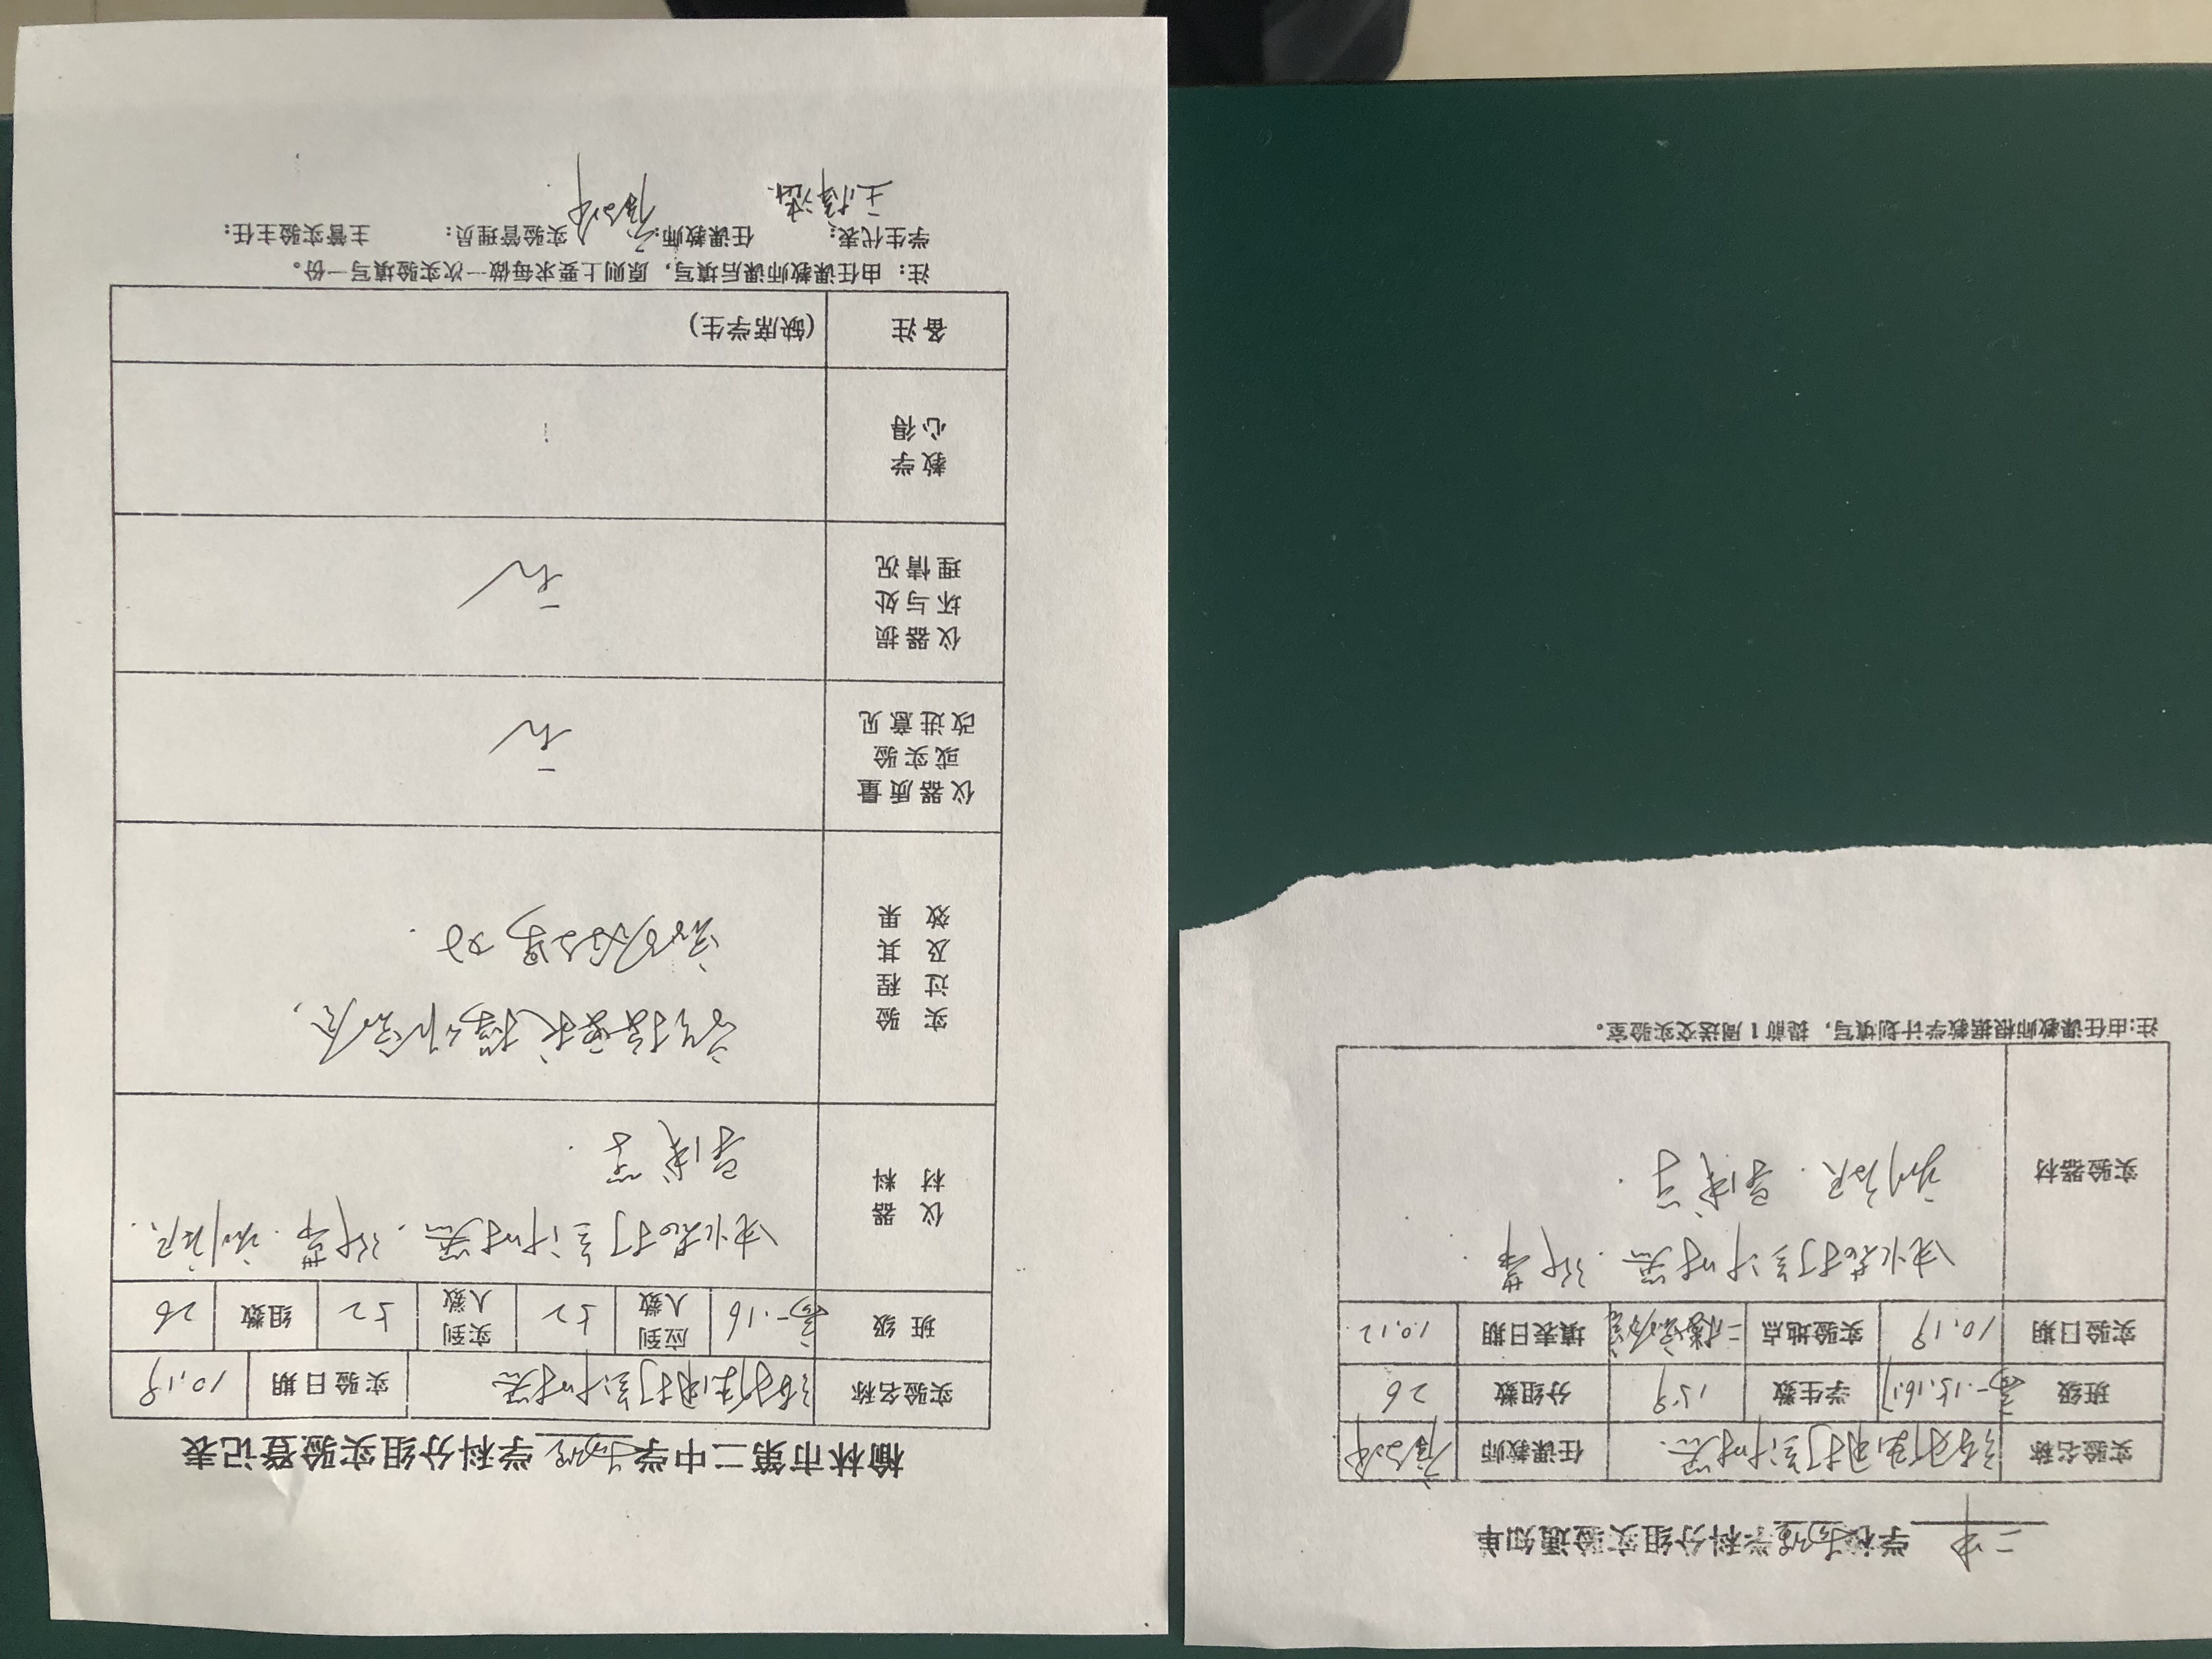 二中 学校物理学科分组实验通知单
实验名称 练习使用打点计时器. 任课教师
班级 高一.15.16.17 学生数 159 分组数 26
实验日期 10.19 实验地点 二楼实验室 填表日期 10.12
实验器材 电火花打点计时器. 纸带.
刻度尺. 导线等
注:由任课教师根据教学计划填写，提前1周送交实验室。
榆林市第二中学物理学科分组实验登记表
实验名称 练习使用打点计时器 实验日期 10.19
班级 高一.16 应到人数 52 实到人数 52 组数 26
仪器材料 电火花打点计时器. 纸带. 刻度尺.
导线等.
实验过程及其效果 学生按要求操作完成,
仪器质量或实验改进意见 无
仪器损坏与处理情况 无
教学心得
备注 (缺席学生)
注：由任课教师课后填写，原则上要求每做一次实验填写一份。
学生代表: 任课教师: 实验管理员: 主管实验主任: